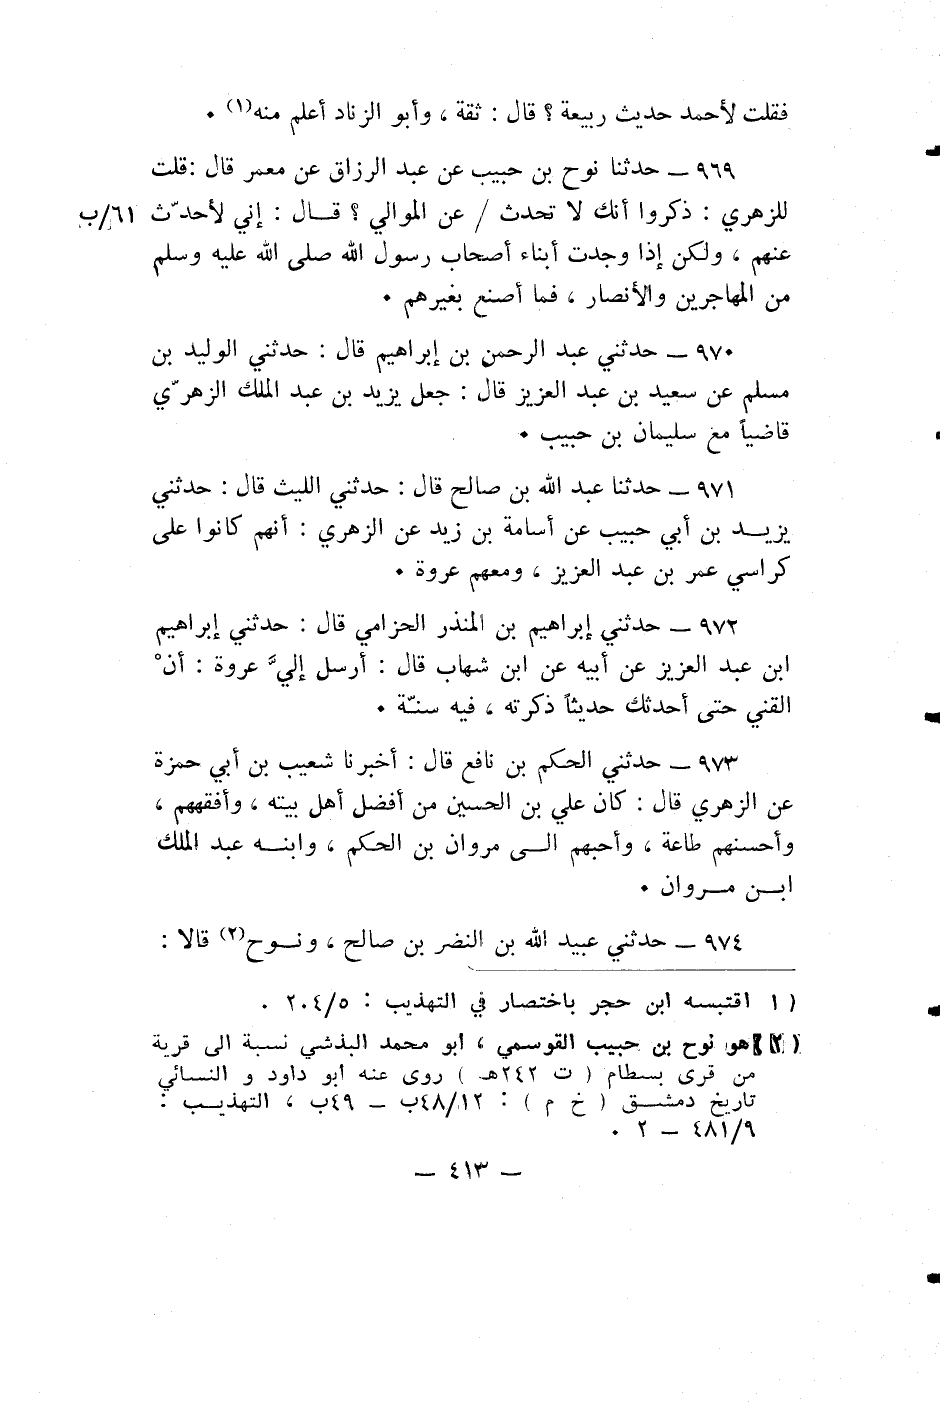 فقلت لأحمد حديث ربيعة ؟ قال : ثقة ، وأبو الزناد أعلم منه(١) .
٩٦٩ ــ حدثنا نوح بن حبيب عن عبد الرزاق عن معمر قال :قلت
للزهري : ذكروا أنك لا تحدث / عن الموالي ؟ قــال : إني لأحدّث ٦١/ب
عنهم ، ولكن إذا وجدت أبناء أصحاب رسول الله صلى الله عليه وسلم
من المهاجرين والأنصار ، فما أصنع بغيرهم .
٩٧٠ ــ حدثني عبد الرحمن بن إبراهيم قال : حدثني الوليد بن
مسلم عن سعيد بن عبد العزيز قال : جعل يزيد بن عبد الملك الزهريّ
قاضياً مع سليمان بن حبيب .
٩٧١ ــ حدثنا عبد الله بن صالح قال : حدثني الليث قال : حدثني
يزيــد بن أبي حبيب عن أسامة بن زيد عن الزهري : أنهم كانوا على
كراسي عمر بن عبد العزيز ، ومعهم عروة .
٩٧٢ ــ حدثني إبراهيم بن المنذر الحزامي قال : حدثني إبراهيم
ابن عبد العزيز عن أبيه عن ابن شهاب قال : أرسل إليَّ عروة : أنْ
القني حتى أحدثك حديثاً ذكرته ، فيه سنّة .
٩٧٣ ــ حدثني الحكم بن نافع قال : أخبرنا شعيب بن أبي حمزة
عن الزهري قال : كان علي بن الحسين من أفضل أهل بيته ، وأفقههم ،
وأحسنهم طاعة ، وأحبهم الــى مروان بن الحكم ، وابنــه عبد الملك
ابــن مــروان .
٩٧٤ ــ حدثني عبيد الله بن النضر بن صالح ، ونــوح(٢) قالا :
(١ اقتبسه ابن حجر باختصار في التهذيب : ٢٠٤/٥ .
(٢) هو نوح بن حبيب القوسمي ، ابو محمد البذشي نسبة الى قرية
من قرى بسطام ( ت ٢٤٢هـ ) روى عنه ابو داود و النسائي
تاريخ دمشــق ( خ م ) : ٤٨/١٢ب ــ ٤٩ب ، التهذيــب :
٤٨١/٩ ــ ٢ .
ــ ٤١٣ ــ